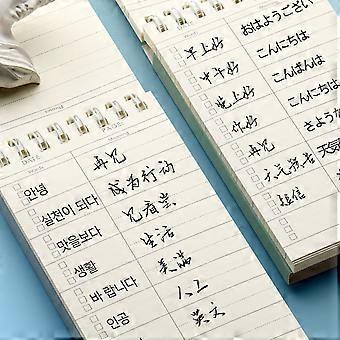 DATE PAGE
Words
안녕 再见
실천이 되다 成为行动
맛을보다
생활 生活
바 랍니다 美满
인공 人工
英文
Words
早上好 おはようござい
中午好 こんにちは
晚上好 こんばんは
你好 こんにちは
再见 さような
天气预告 天気
短信